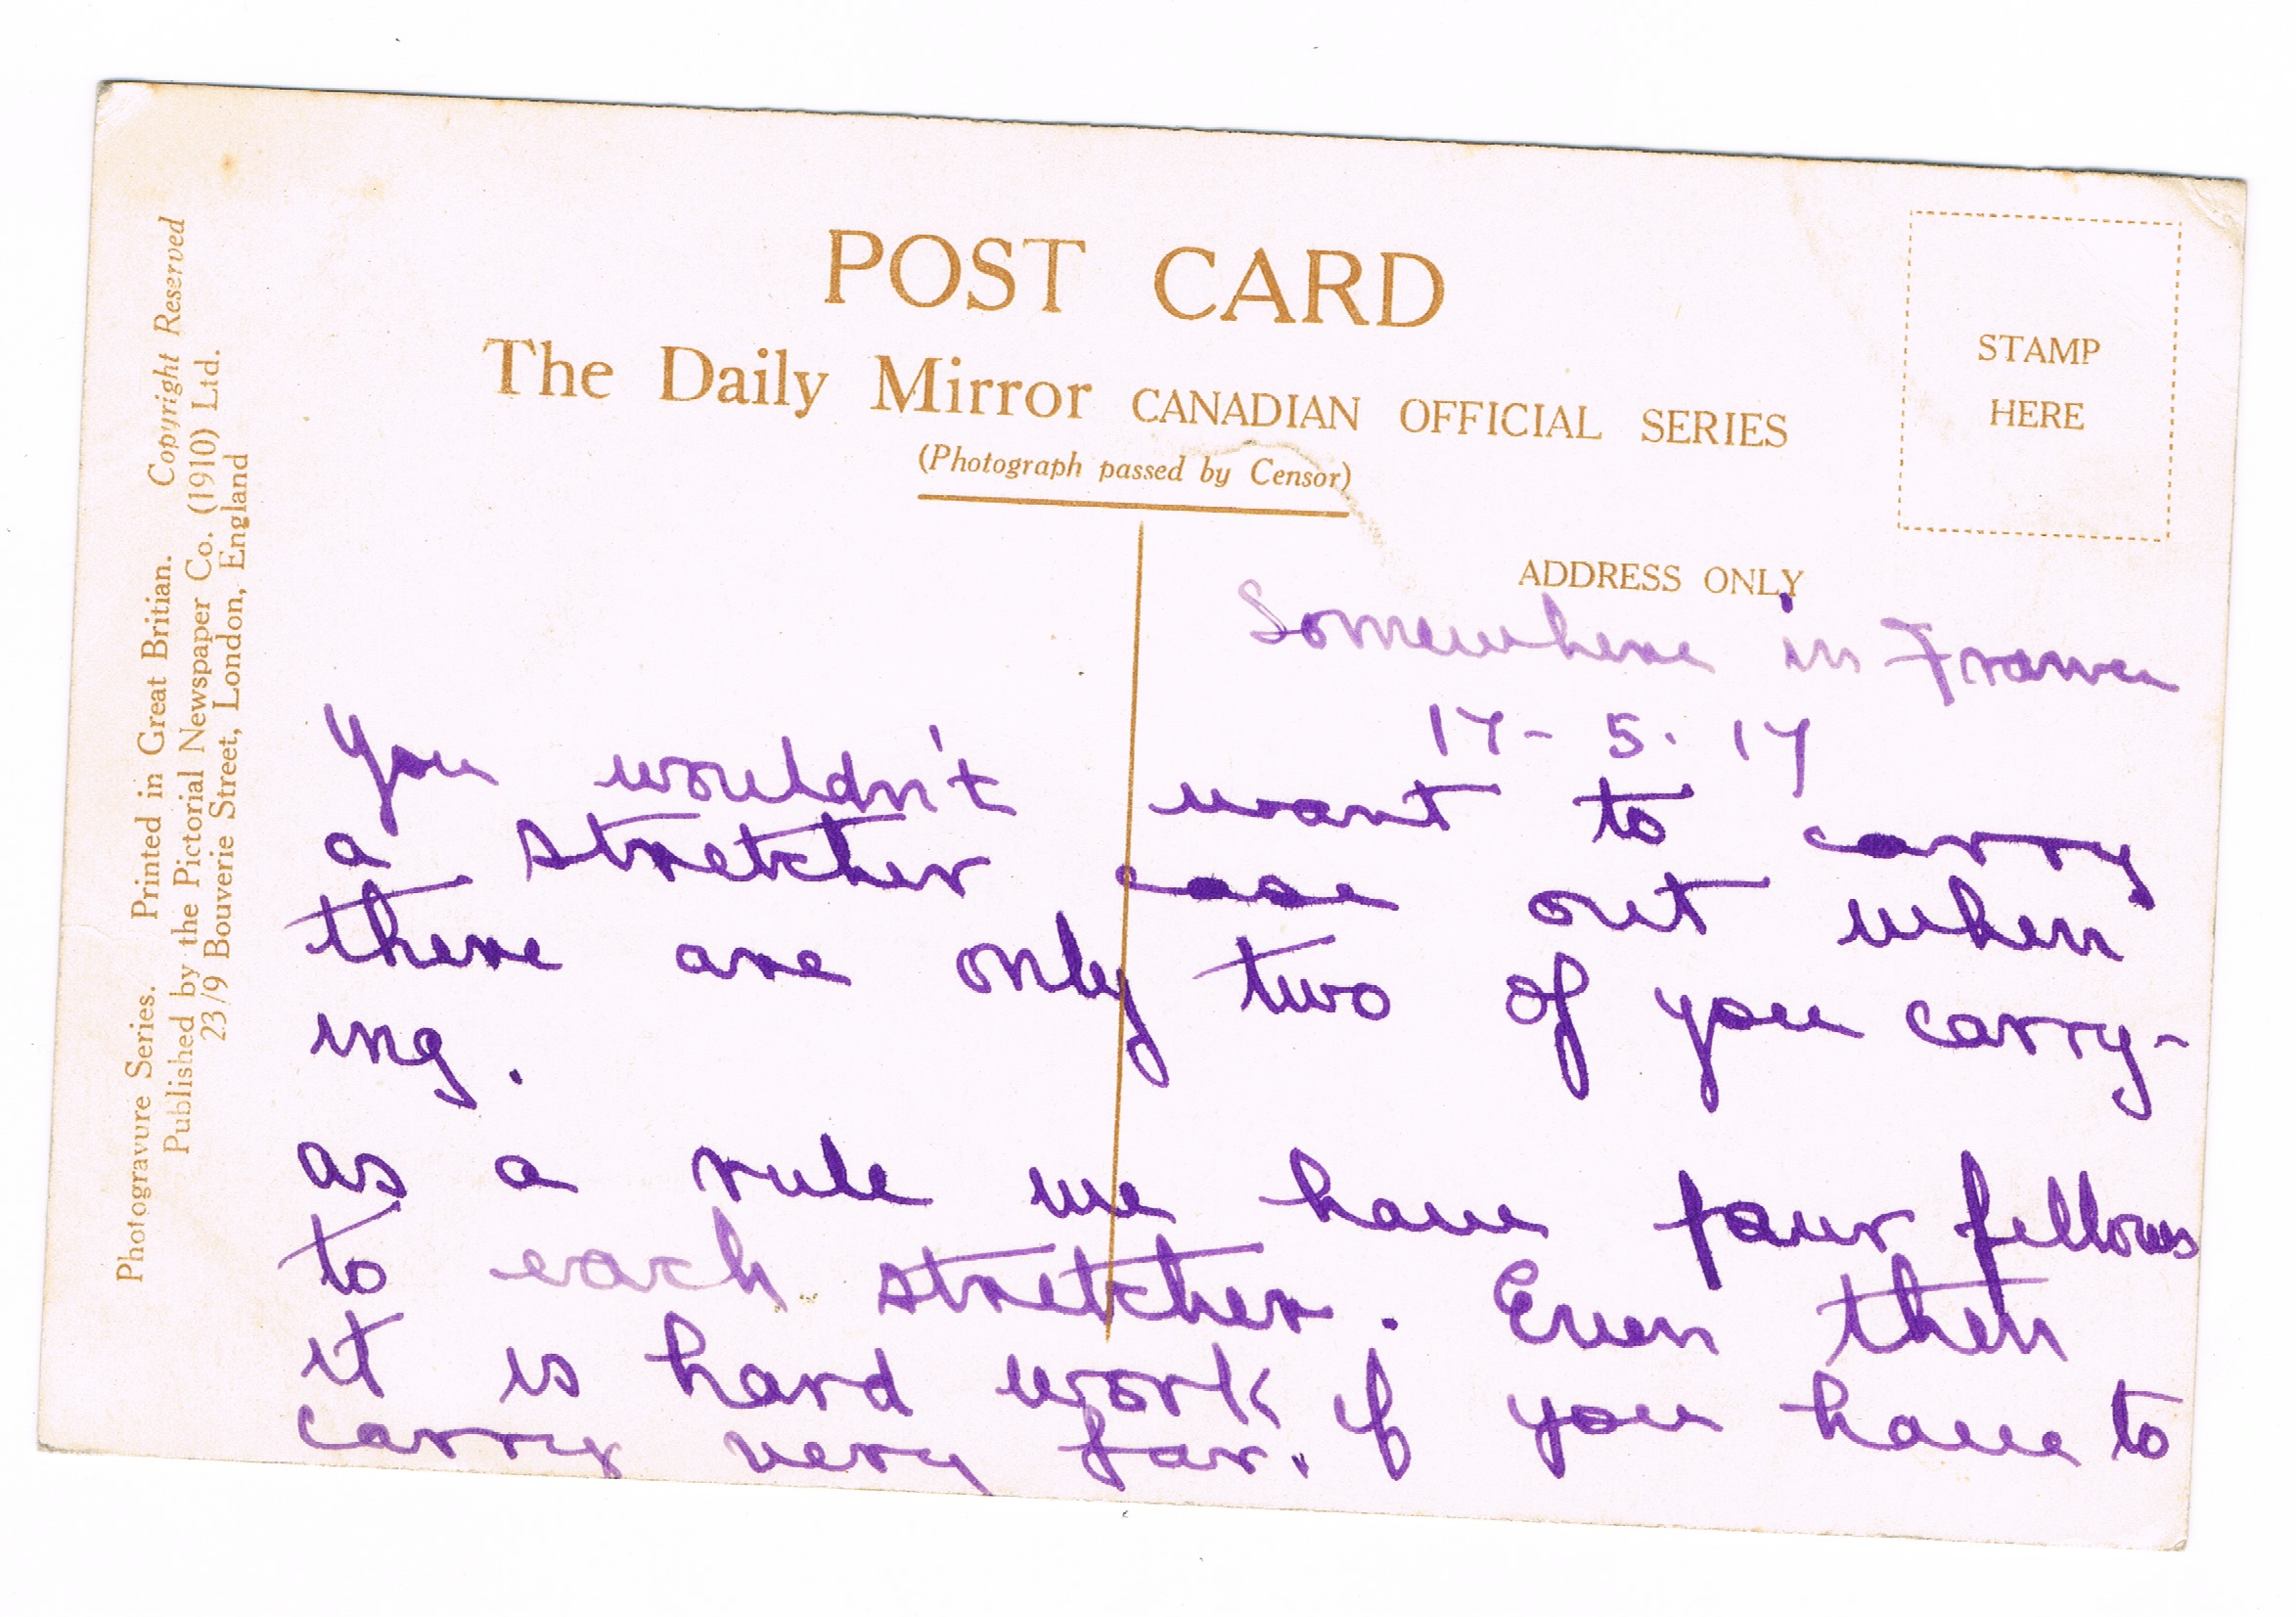 POST CARD
The Daily Mirror CANADIAN OFFICIAL SERIES
(Photograph passed by Censor)
STAMP
HERE
ADDRESS ONLY
Photogravure Series. Printed in Great Britian. Copyright Reserved
Published by the Pictorial Newspaper Co. (1910) Ltd.
23/9 Bouverie Street, London, England
Somewhere in France
17-5.17
You wouldn't want to carry
a stretcher case out when
there are only two of you carry-
ing.
as a rule we have four fellows
to each stretcher. Even then
it is hard work if you have to
carry very far.